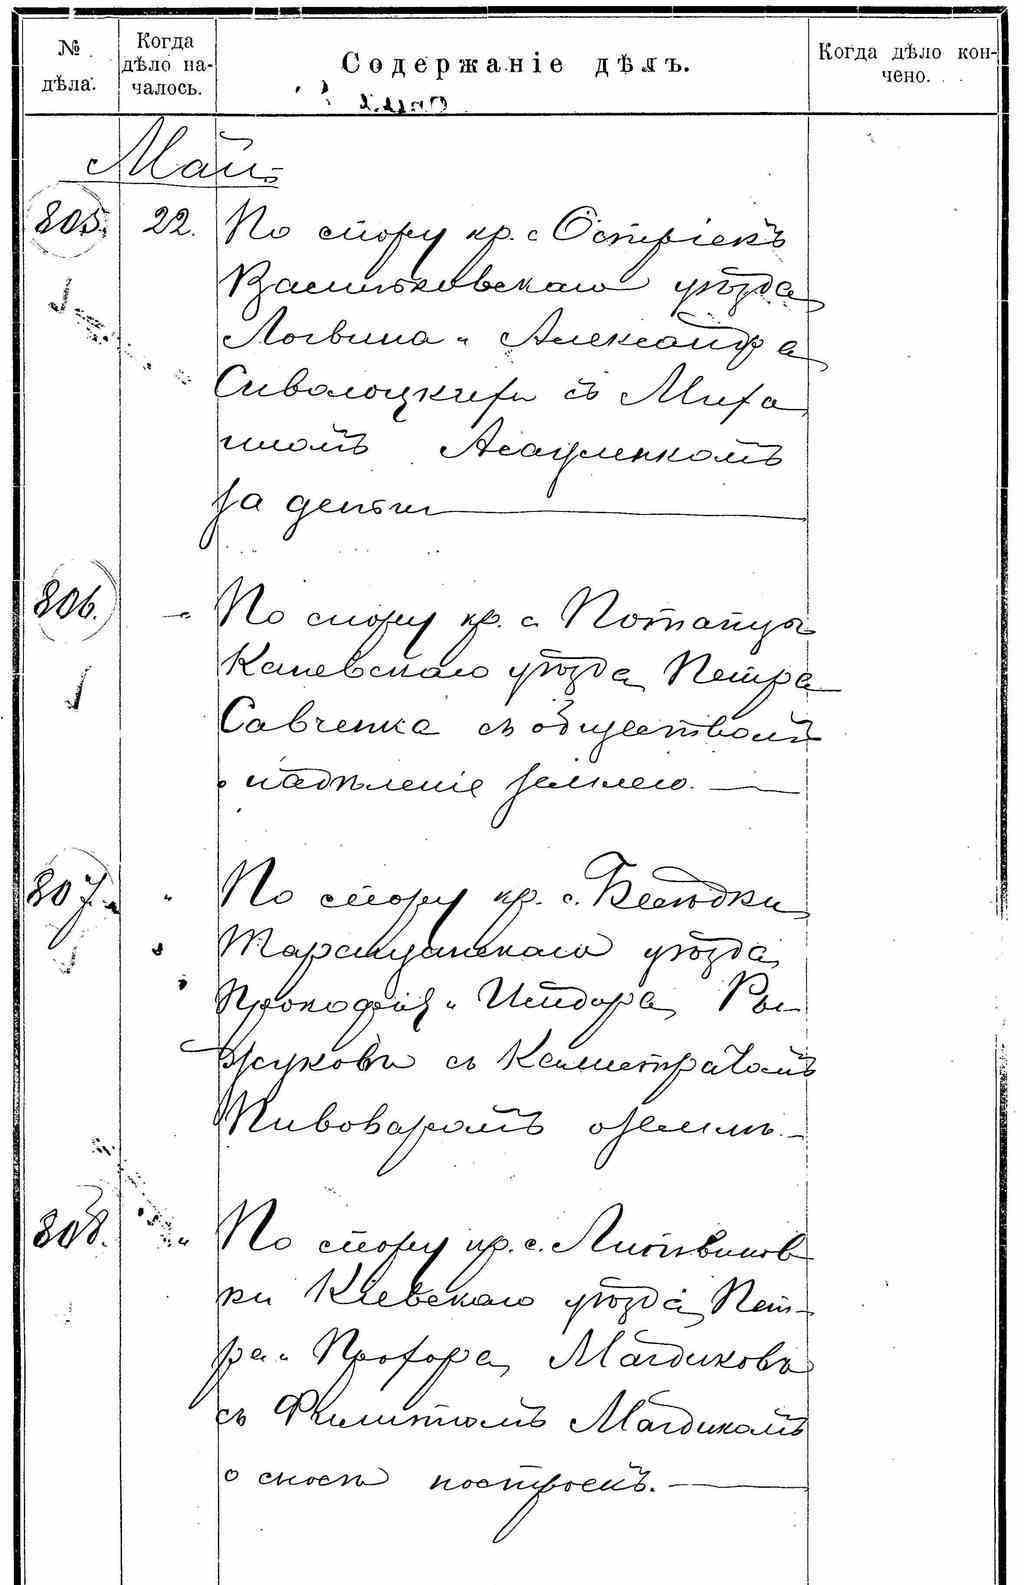 № дѣла.
Когда дѣло началось.
Содержаніе дѣлъ.
Когда дѣло кончено.
Май
805. 22. По спору кр. с Острiекъ
Васильковскаго уѣзда
Логвина и Александра
Сиволоцкихъ съ Миха
иломъ Асауленкомъ
за деньги
806. " По спору кр. с Потапцы
Каневскаго уѣзда Петра
Савченка съ обществомъ
о надѣленіе землею.
807. " По спору кр. с.
Таращанскаго уѣзда
Прокофія и Исидора Ры
жуковы съ Калистратомъ
Пивоваромъ о землѣ.
808. " По спору кр. с. Литвинов
ки Кіевскаго уѣзда Пет-
ра и Прохора Магдиковъ
съ Филиппомъ Магдикомъ
о сносѣ построекъ.